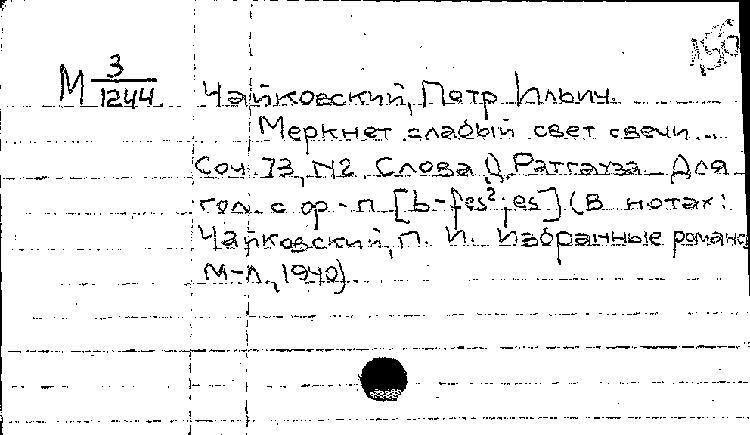 156
М 3/1244
Чайковский, Петр Ильич.
Меркнет слабый свет свечи...
Соч. 73, N2. Слова Д. Ратгауза. Для
гол. с ф-п [b-fes²; es] (В нотах:
Чайковский, П. И. Избранные романс
М-Л., 1940).